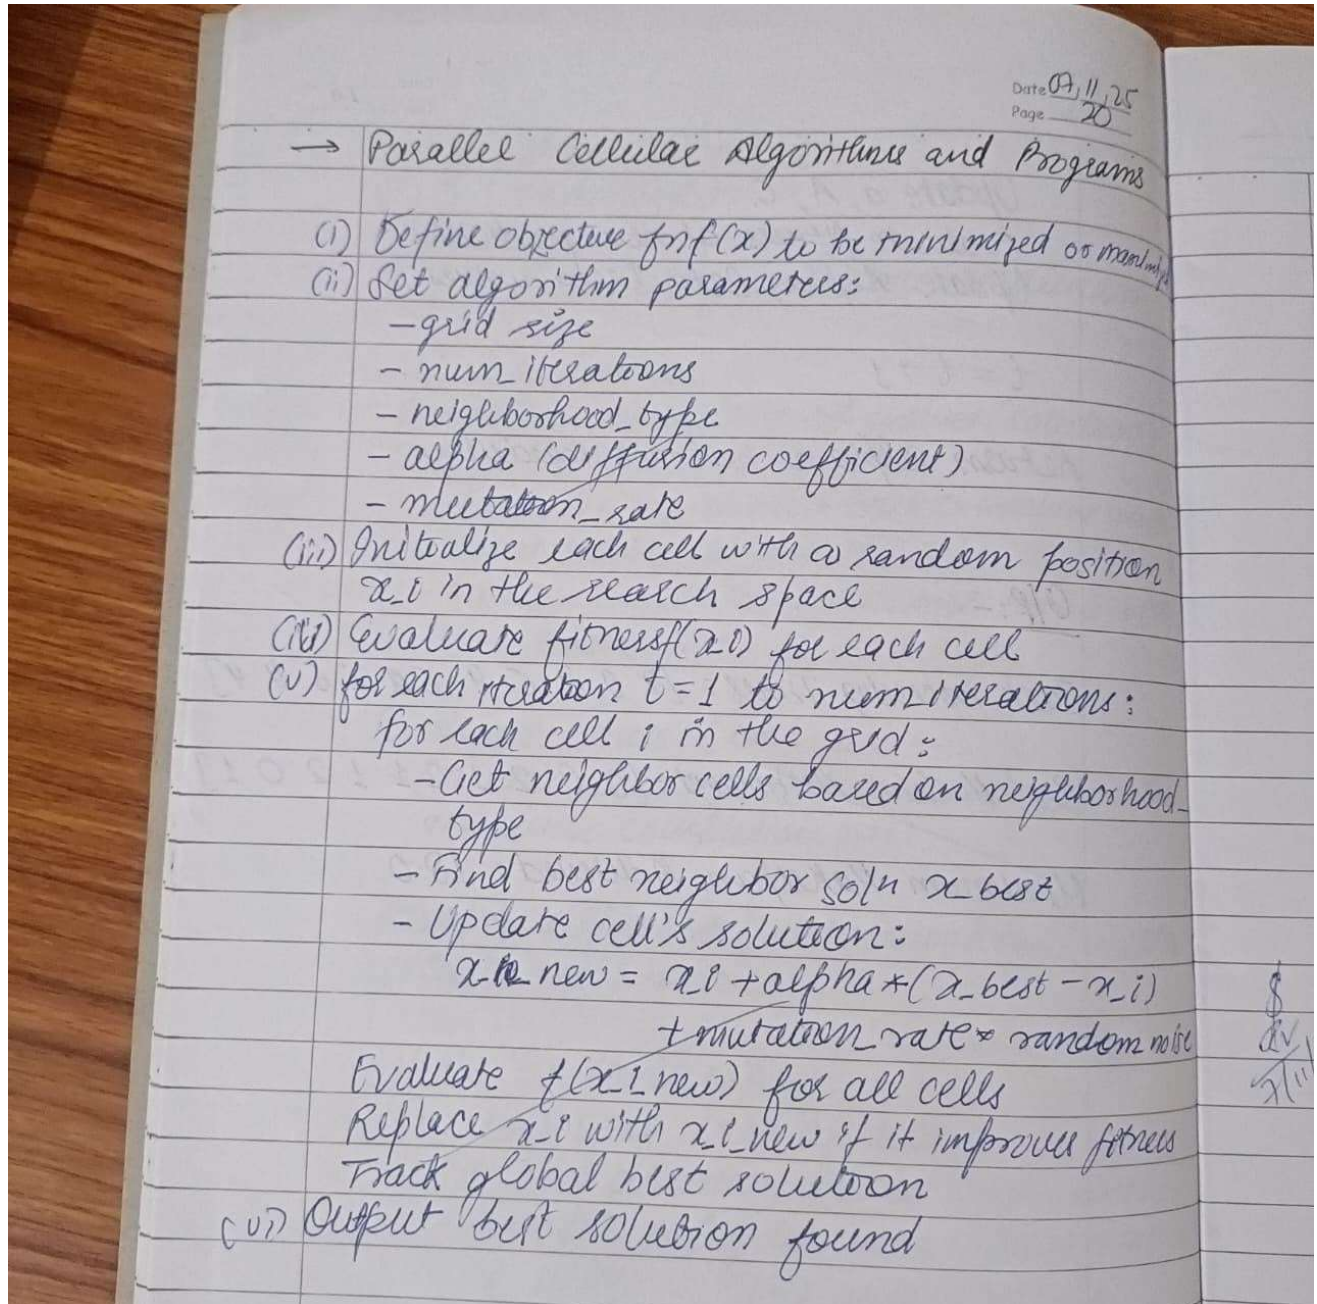 Date 07, 11, 25
Page 20
→ Parallel Cellular Algorithms and Programs
(i) Define objective fn f(x) to be minimized or maximized
(ii) Set algorithm parameters:
- grid size
- num_iterations
- neighborhood_type
- alpha (diffusion coefficient)
- mutation_rate
(iii) Initialize each cell with a random position
x_i in the search space
(iv) Evaluate fitness f(x_i) for each cell
(v) for each iteration t=1 to num iterations:
for each cell i in the grid:
- Get neighbor cells based on neighborhood_
type
- Find best neighbor soln x_best
- Update cell's solution:
x_i_new = x_i + alpha * (x_best - x_i)
+ mutation_rate * random noise
Evaluate f(x_i_new) for all cells
Replace x_i with x_i_new if it improves fitness
Track global best solution
(vi) Output best solution found